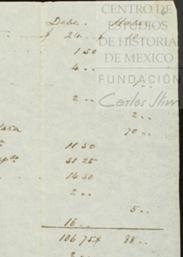 CENTRO DE
ESTUDIOS
DE HISTORIA
DE MEXICO
FUNDACIÓN
Carlos Slim
Debe. Haber
$ 24
1 50
4 "
2 "
2 "
70 "
11 50
31 25
14 50
2 "
5 "
16 "
106 75 88 "
2 "